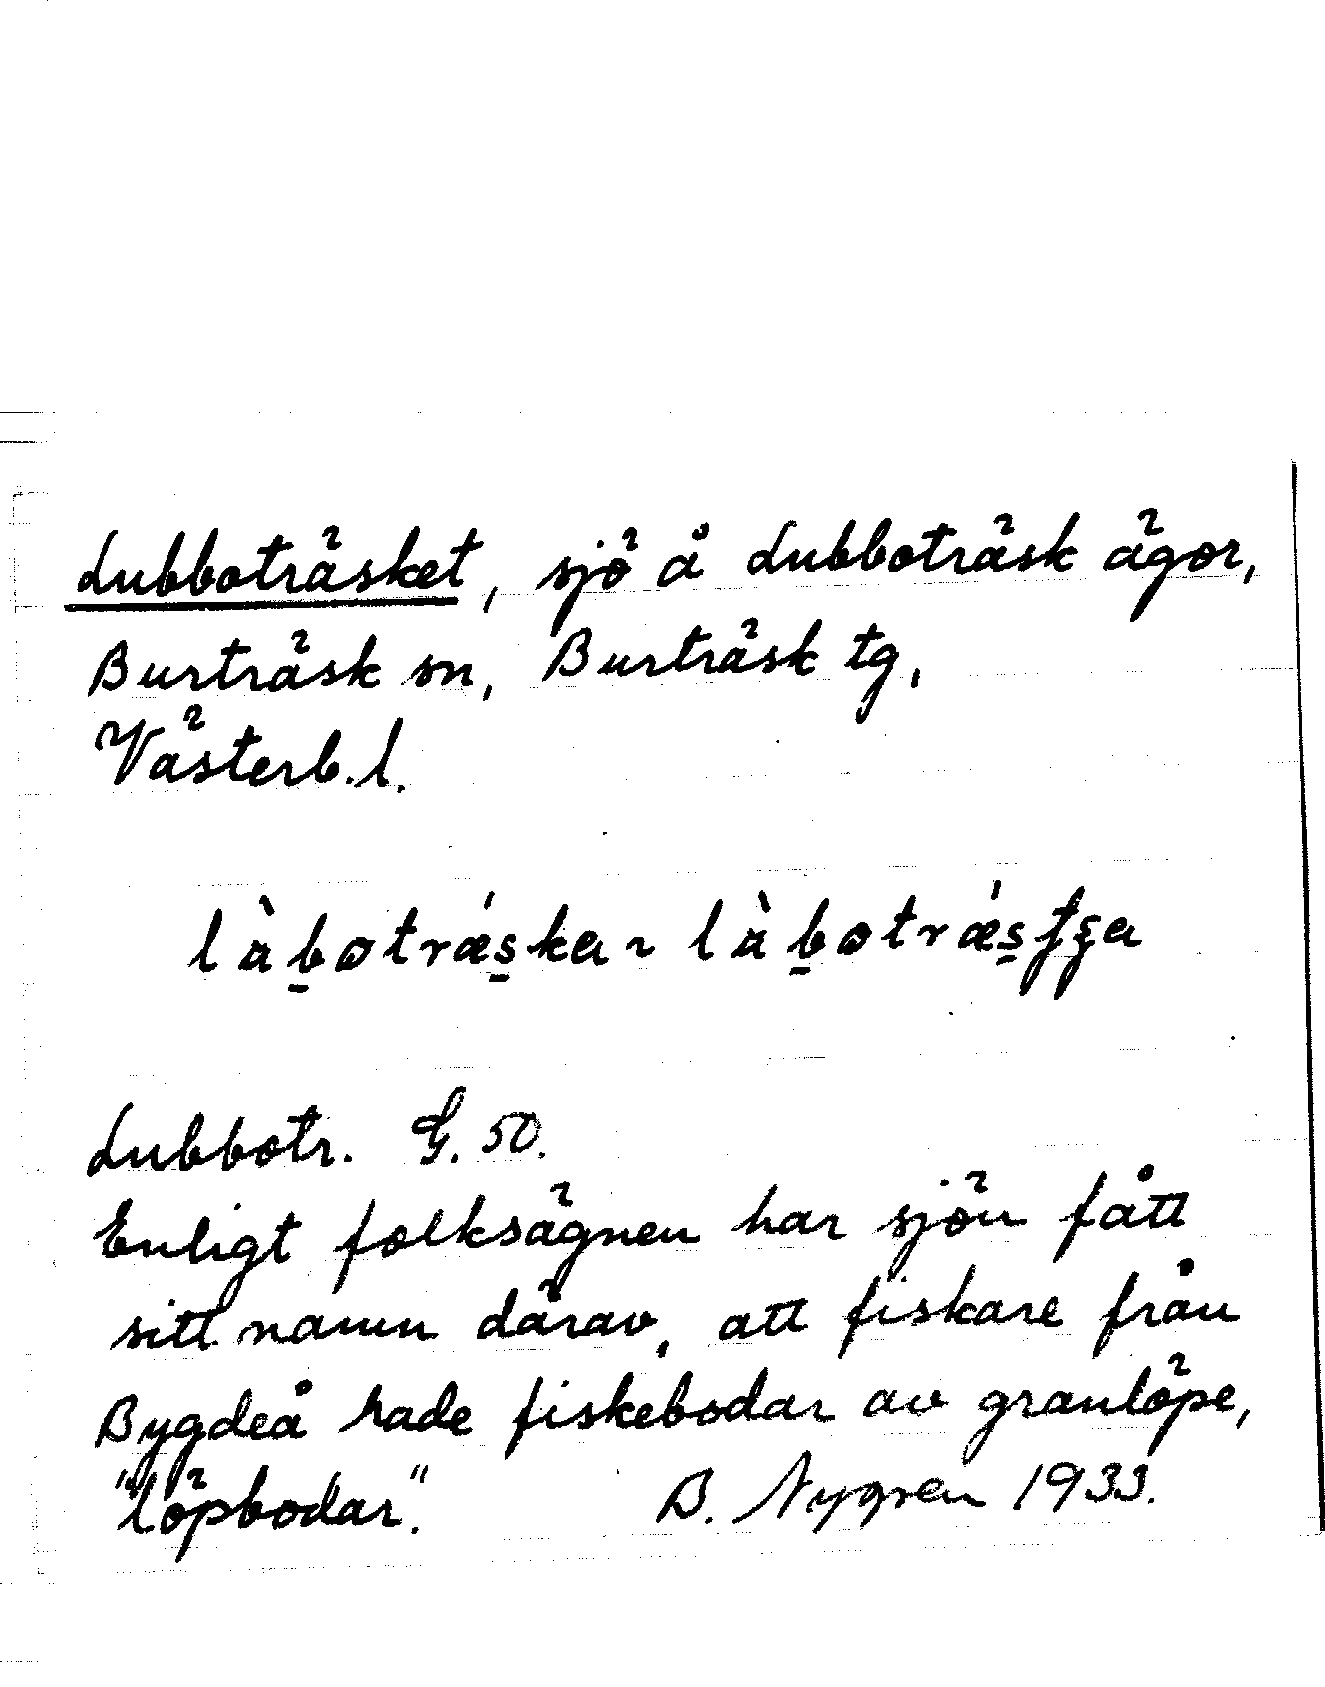 Lubboträsket, sjö å Lubboträsk ägor,
Burträsk sn, Burträsk tg,
Västerb. l.
Lubbotr. G. 50.
Enligt folksägnen har sjön fått
sitt namn därav, att fiskare från
Bygdeå hade fiskebodar av granlöpe,
"löpbodar".   B. Nygren 1933.